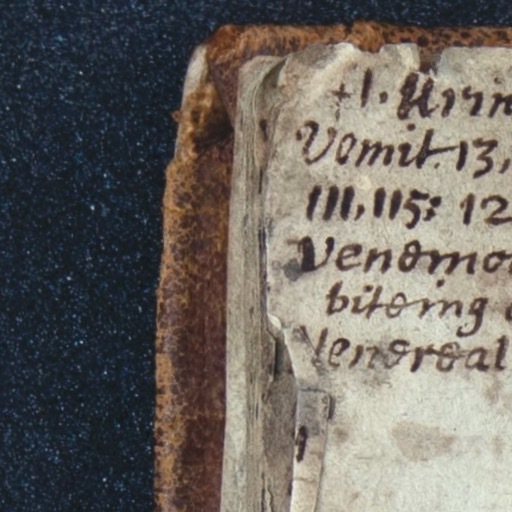 +1. Urin
Vomit. 13,
111, 115: 12
Venomo
biteing
Venereal